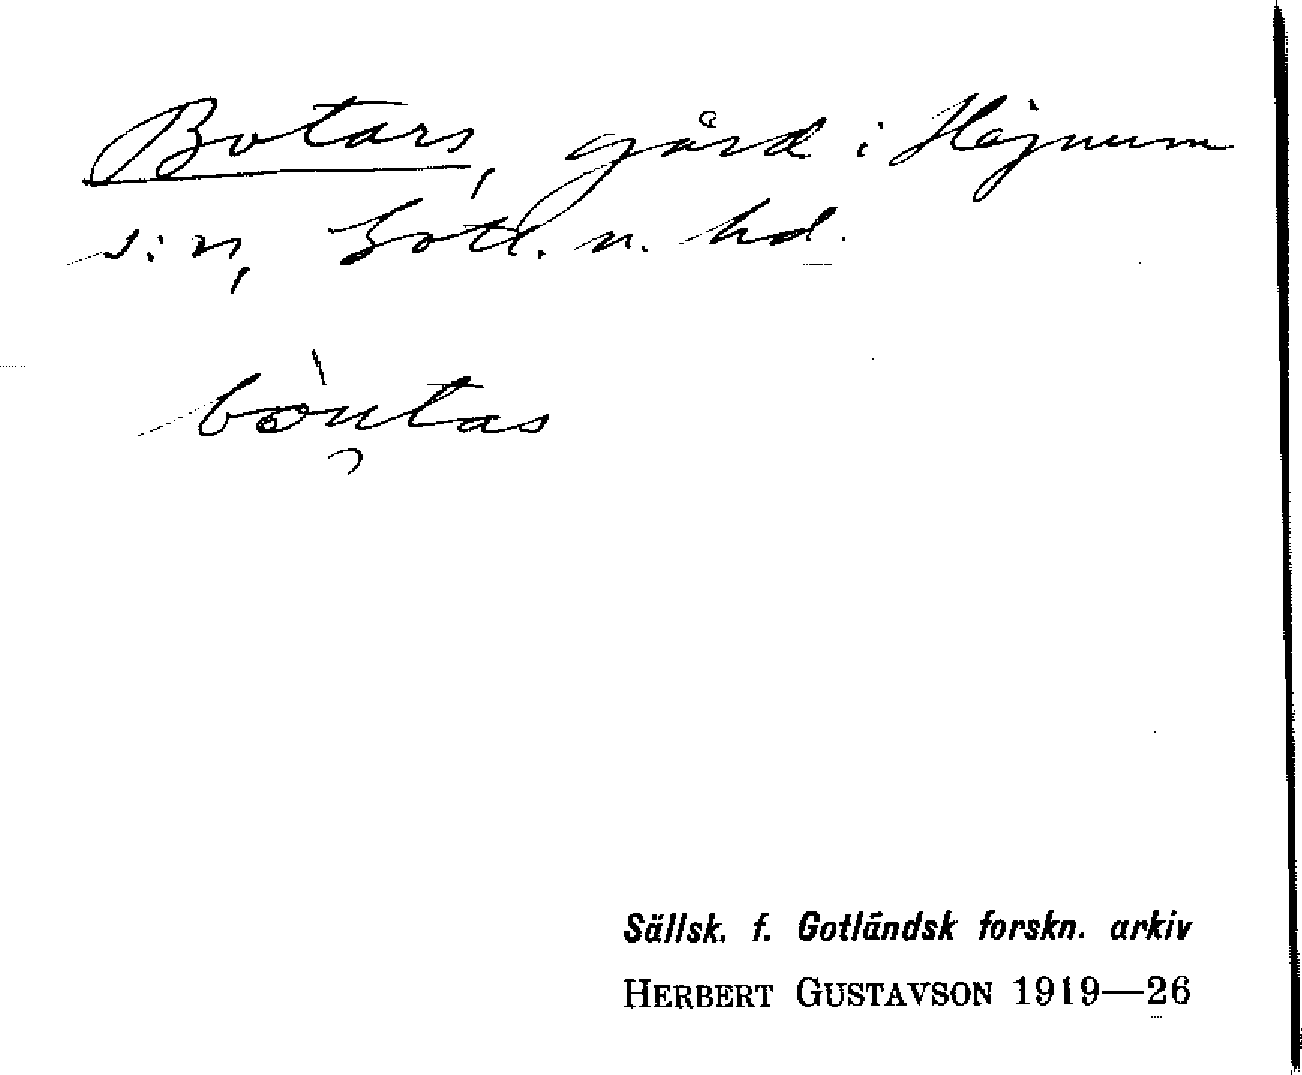 Botars, gård i Hejnum
s:n, Gotl. n. hd.
bòu̯tas
Sällsk. f. Gotländsk forskn. arkiv
HERBERT GUSTAVSON 1919—26